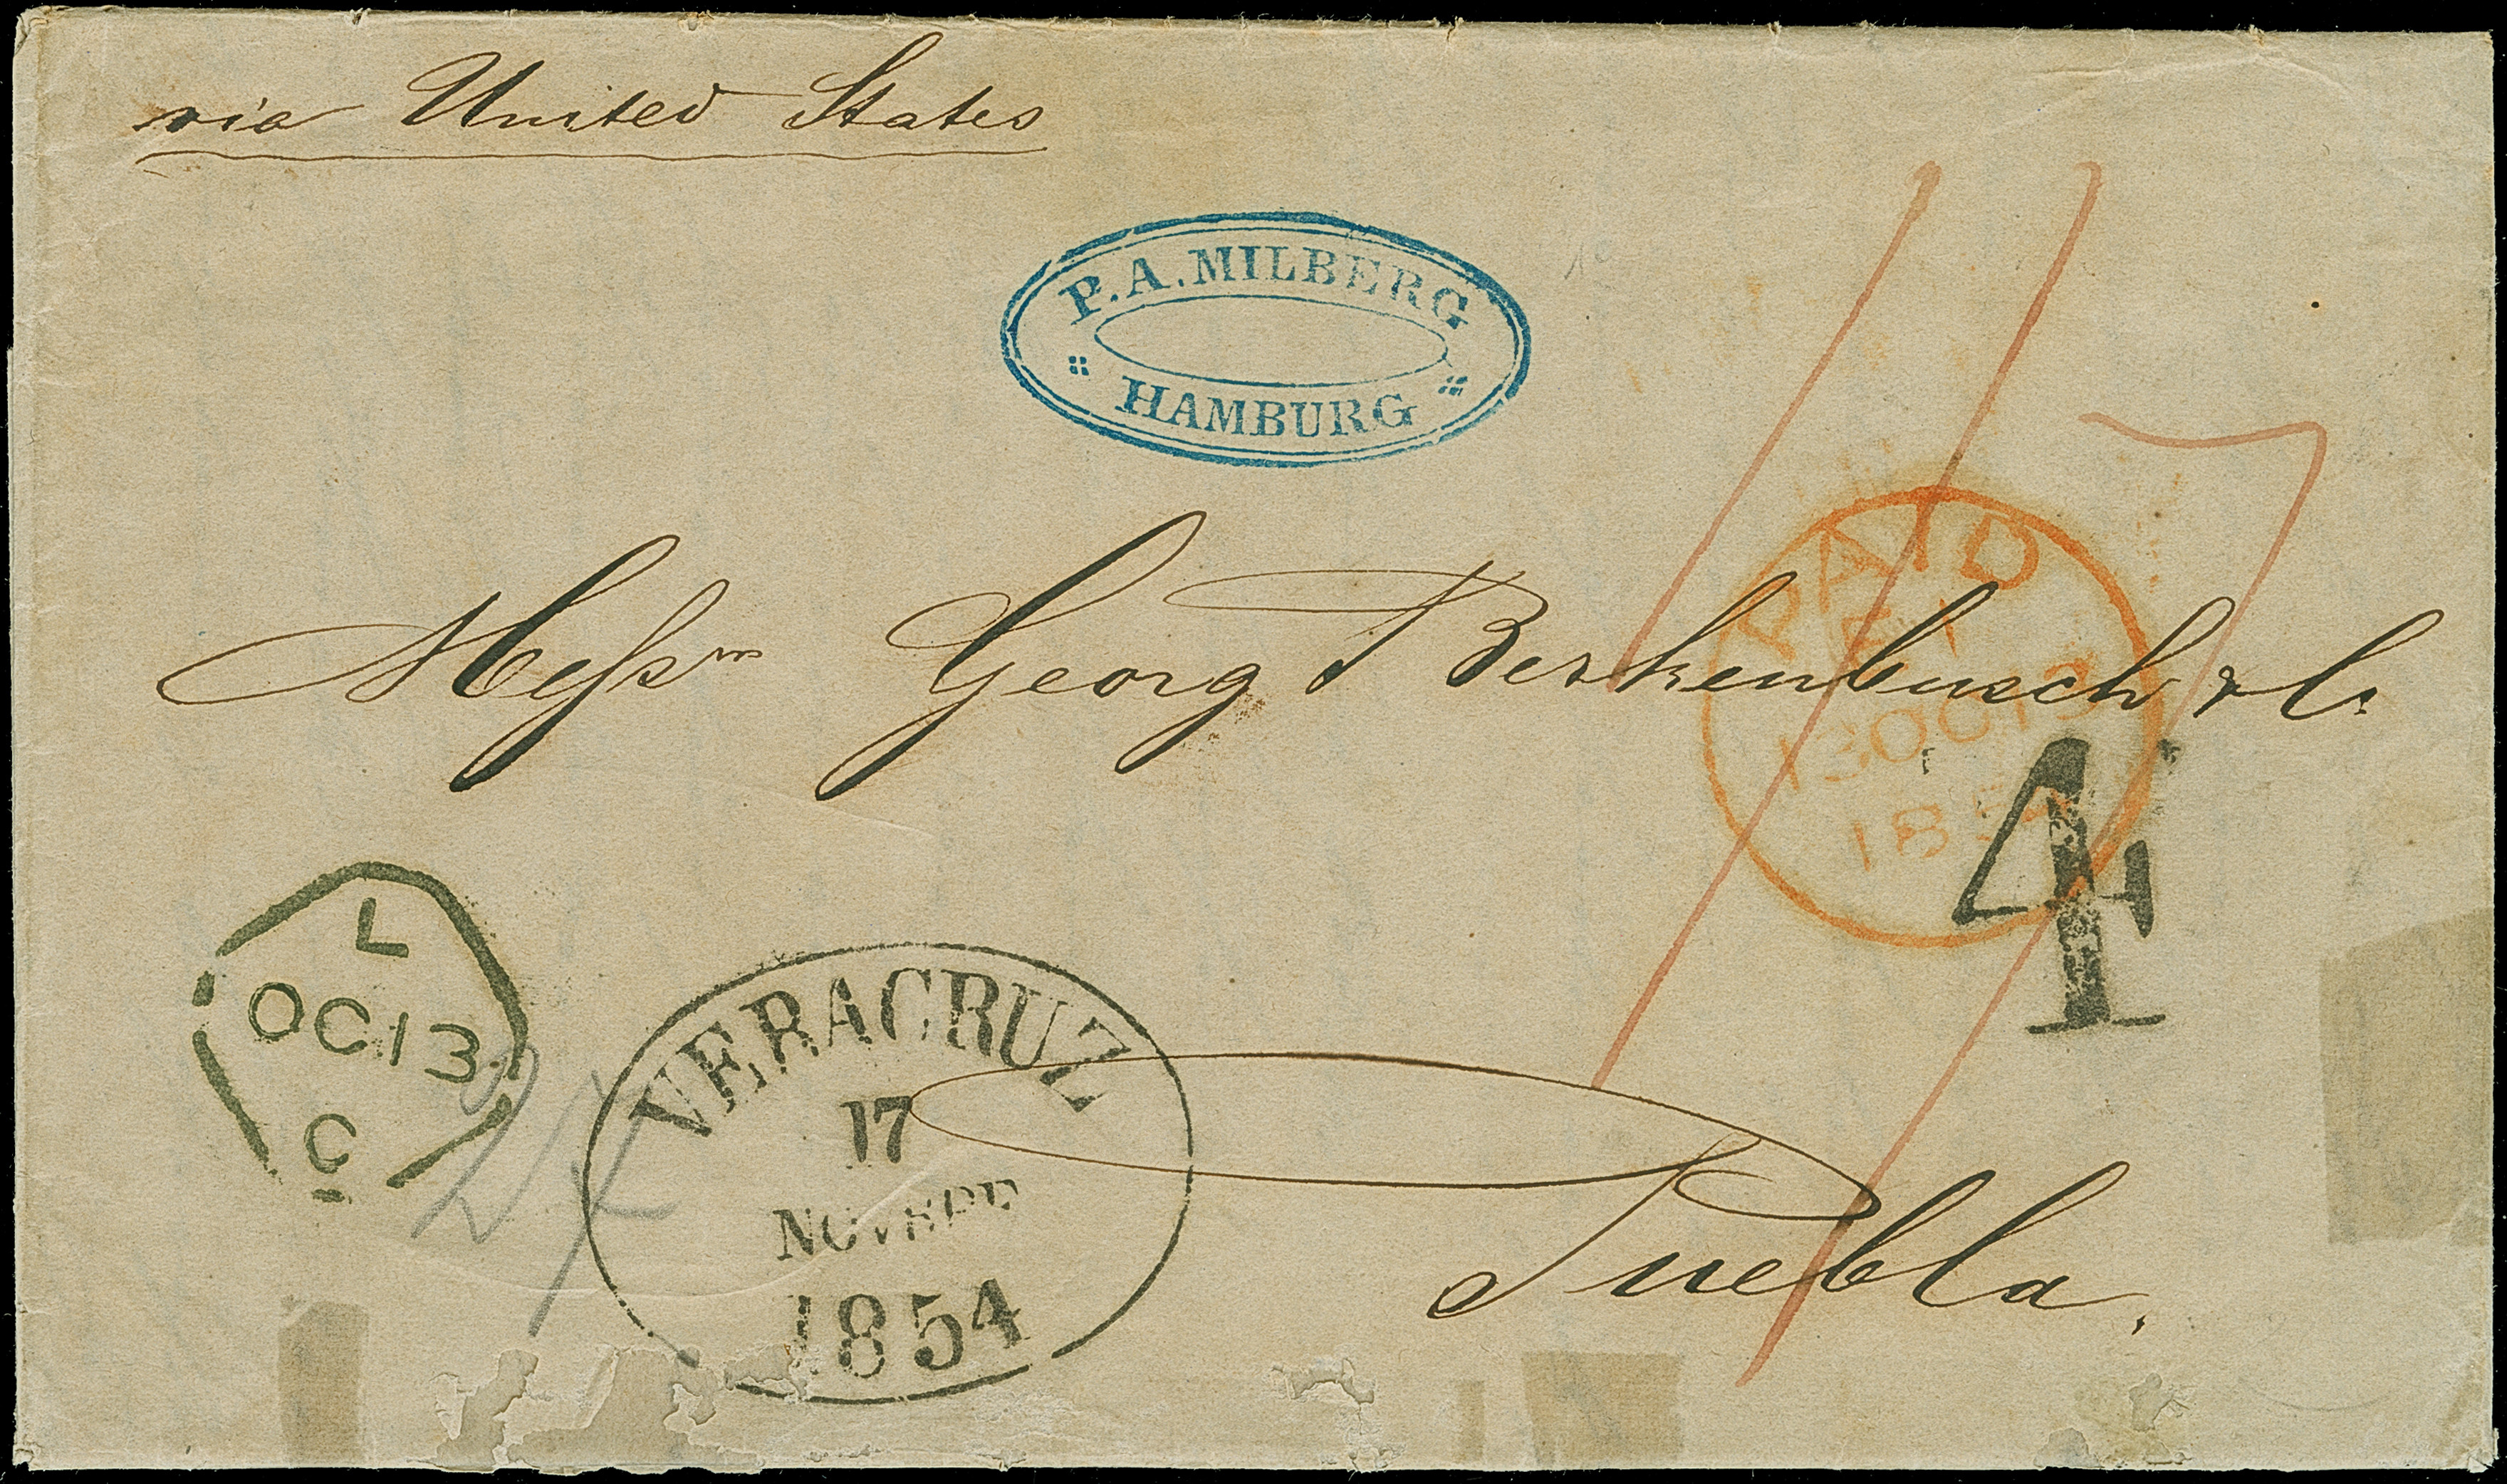 via United States
P. A. MILBERG
HAMBURG
Messrs Georg Berkenbusch & Co
PAID
13 OC 13
1854
4
L
OC 13
C
VERACRUZ
17
1854
Puebla.